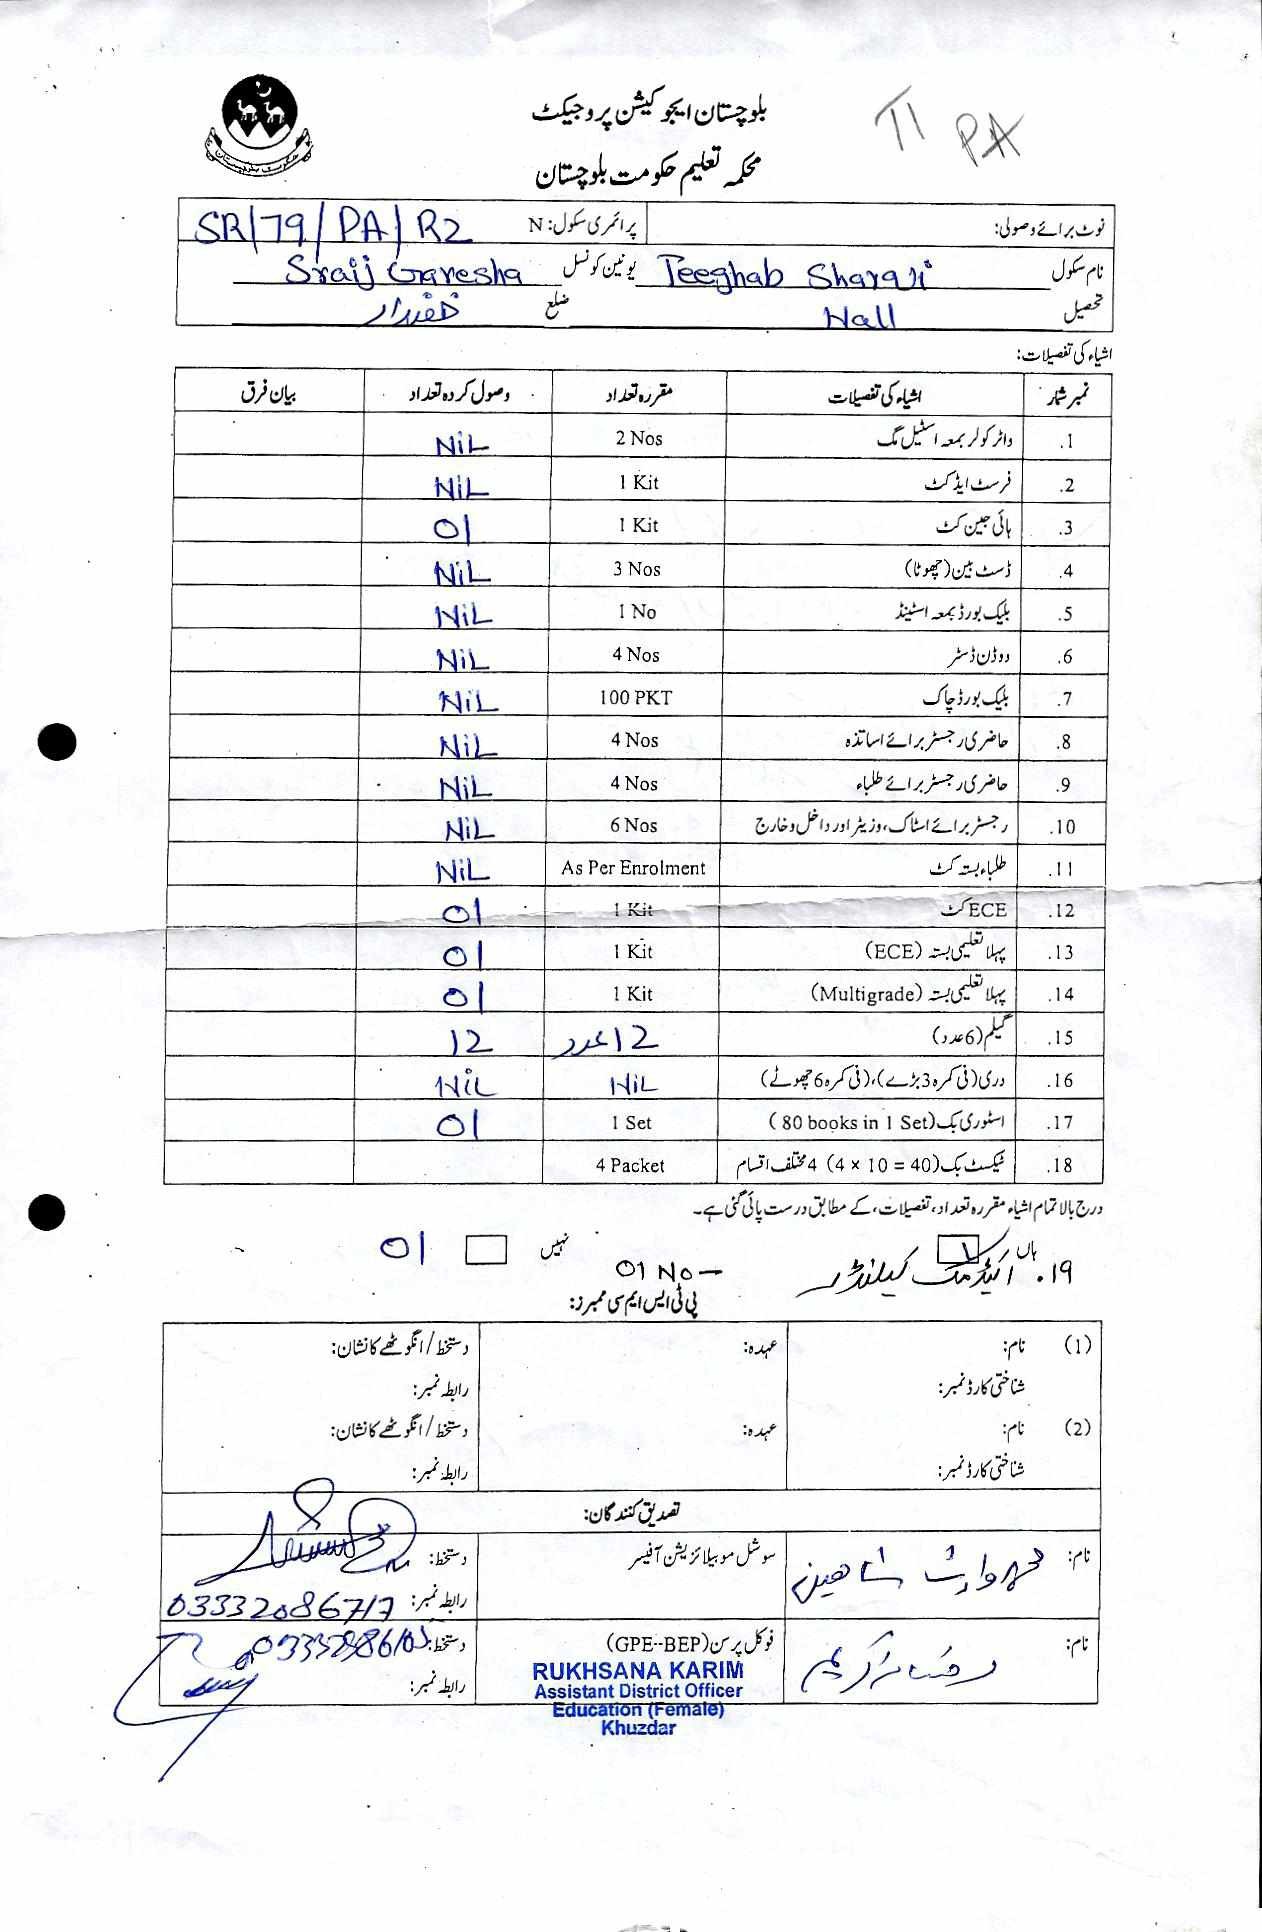 بلوچستان ایجوکیشن پروجیکٹ
TI PA
محکمہ تعلیم حکومت بلوچستان
نوٹ برائے وصولی: پرائمری سکول: N SR/79/PA/R2
نام سکول Teeghab Sharaji یونین کونسل Sraij Garesha
تحصیل Nall ضلع خضدار
اشیاء کی تفصیلات:
نمبر شمار اشیاء کی تفصیلات مقررہ تعداد وصول کردہ تعداد بیان فرق
1. واٹر کولر بمعہ اسٹیل مگ 2 Nos NiL
2. فرسٹ ایڈ کٹ 1 Kit NiL
3. ہائی جین کٹ 1 Kit 01
4. ڈسٹ بین (چھوٹا) 3 Nos NiL
5. بلیک بورڈ بمعہ اسٹینڈ 1 No NiL
6. ووڈن ڈسٹر 4 Nos NiL
7. بلیک بورڈ چاک 100 PKT NiL
8. حاضری رجسٹر برائے اساتذہ 4 Nos NiL
9. حاضری رجسٹر برائے طلباء 4 Nos NiL
10. رجسٹر برائے اسٹاک، وزیٹر اور داخل و خارج 6 Nos NiL
11. طلباء بستہ کٹ As Per Enrolment NiL
12. ECE کٹ 1 Kit 01
13. پہلا تعلیمی بستہ (ECE) 1 Kit 01
14. پہلا تعلیمی بستہ (Multigrade) 1 Kit 01
15. گیلم (6 عدد) 12 عدد 12
16. دری (فی کمرہ 3 بڑے)، (فی کمرہ 6 چھوٹے) NiL NiL
17. اسٹوری بک (80 books in 1 Set) 1 Set 01
18. ٹیکسٹ بک (4 x 10 = 40) 4 مختلف اقسام 4 Packet
درج بالا تمام اشیاء مقررہ تعداد، تفصیلات، کے مطابق درست پائی گئی ہے۔
ہاں نہیں 01
۱۹. اکیڈمک کیلنڈر 01 No
پی ٹی ایس ایم سی ممبرز:
(1) نام: عہدہ: دستخط/انگوٹھے کا نشان:
شناختی کارڈ نمبر: رابطہ نمبر:
(2) نام: عہدہ: دستخط/انگوٹھے کا نشان:
شناختی کارڈ نمبر: رابطہ نمبر:
تصدیق کنندگان:
نام: شاہین سوشل موبیلائزیشن آفیسر دستخط:
رابطہ نمبر: 03332086717
نام: رخسانہ کریم فوکل پرسن (GPE--BEP) دستخط:
RUKHSANA KARIM
Assistant District Officer رابطہ نمبر:
Education (Female)
Khuzdar